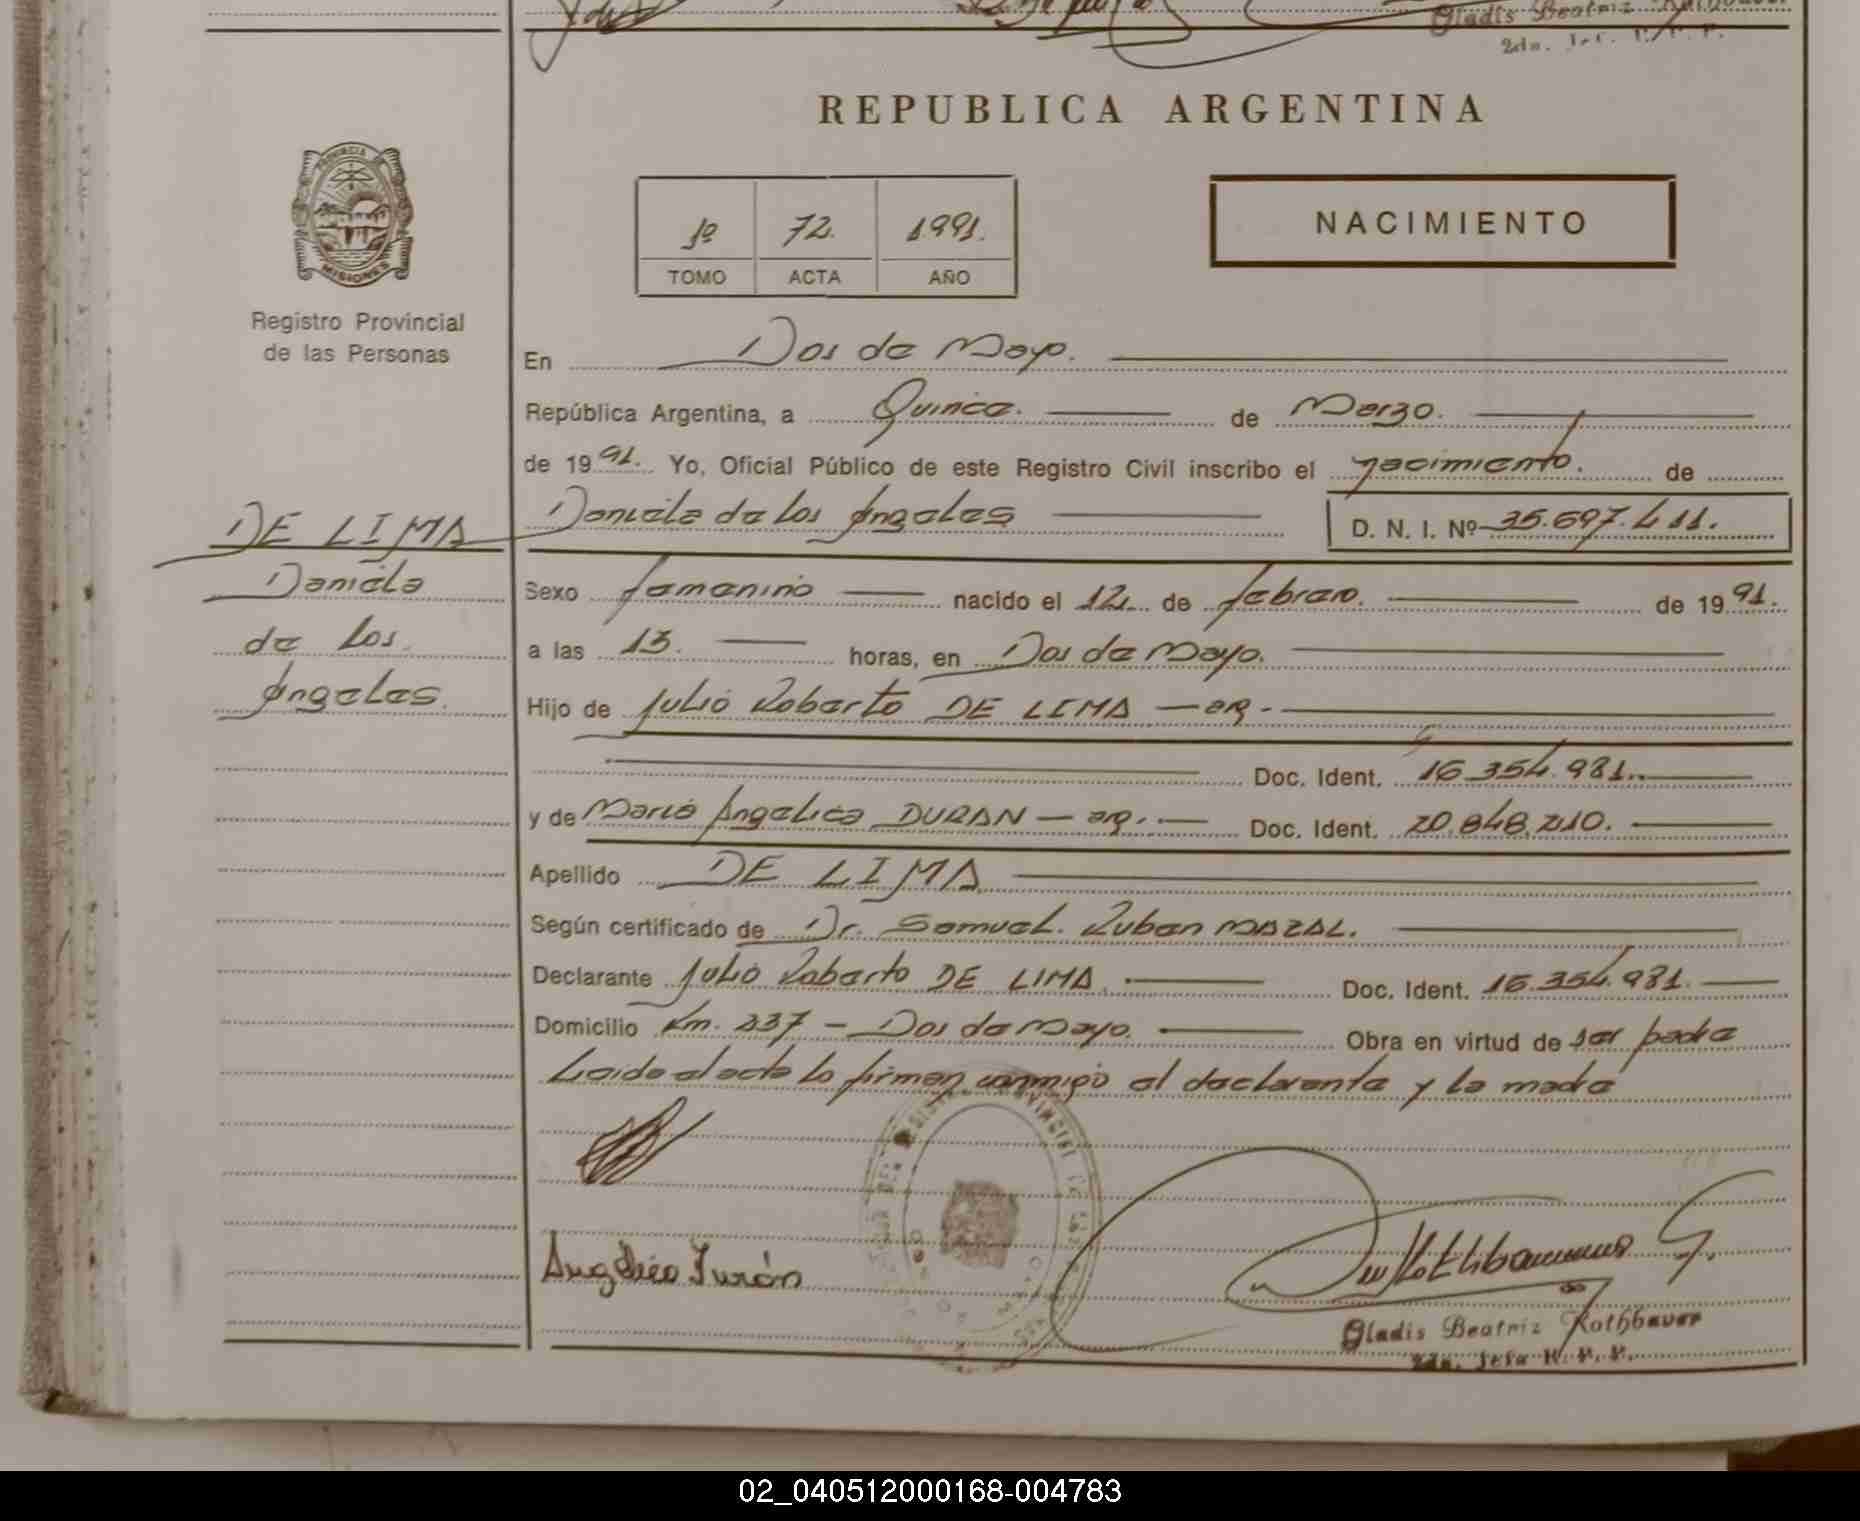 Gladis Beatriz Rothbauer
REPUBLICA ARGENTINA
PROVINCIA DE
MISIONES
1º 72. 1991.
TOMO ACTA AÑO
NACIMIENTO
Registro Provincial
de las Personas
En Dos de Mayo.
República Argentina, a Quince. de Marzo.
de 1991. Yo, Oficial Público de este Registro Civil inscribo el nacimiento. de
DE LIMA
Daniela de los Angeles D. N. I. Nº 35.697.411.
Daniela
de los.
Angeles.
Sexo femenino nacido el 12. de febrero. de 1991.
a las 13. horas, en Dos de Mayo.
Hijo de Julio Roberto DE LIMA — arg.-
Doc. Ident. 16.354.981.
y de Maria Angelica DURAN — arg.- Doc. Ident. 20.848.210.
Apellido DE LIMA
Según certificado de Dr. Samuel. Ruben MAZAL.
Declarante Julio Roberto DE LIMA. Doc. Ident. 16.354.981.
Domicilio Km. 237 - Dos de Mayo. Obra en virtud de ser padre
Leida el acta lo firman conmigo el declarante y la madre
Angelica Durán
Gladis Beatriz Rothbauer
2da. Jefa R. P. P.
02_040512000168-004783